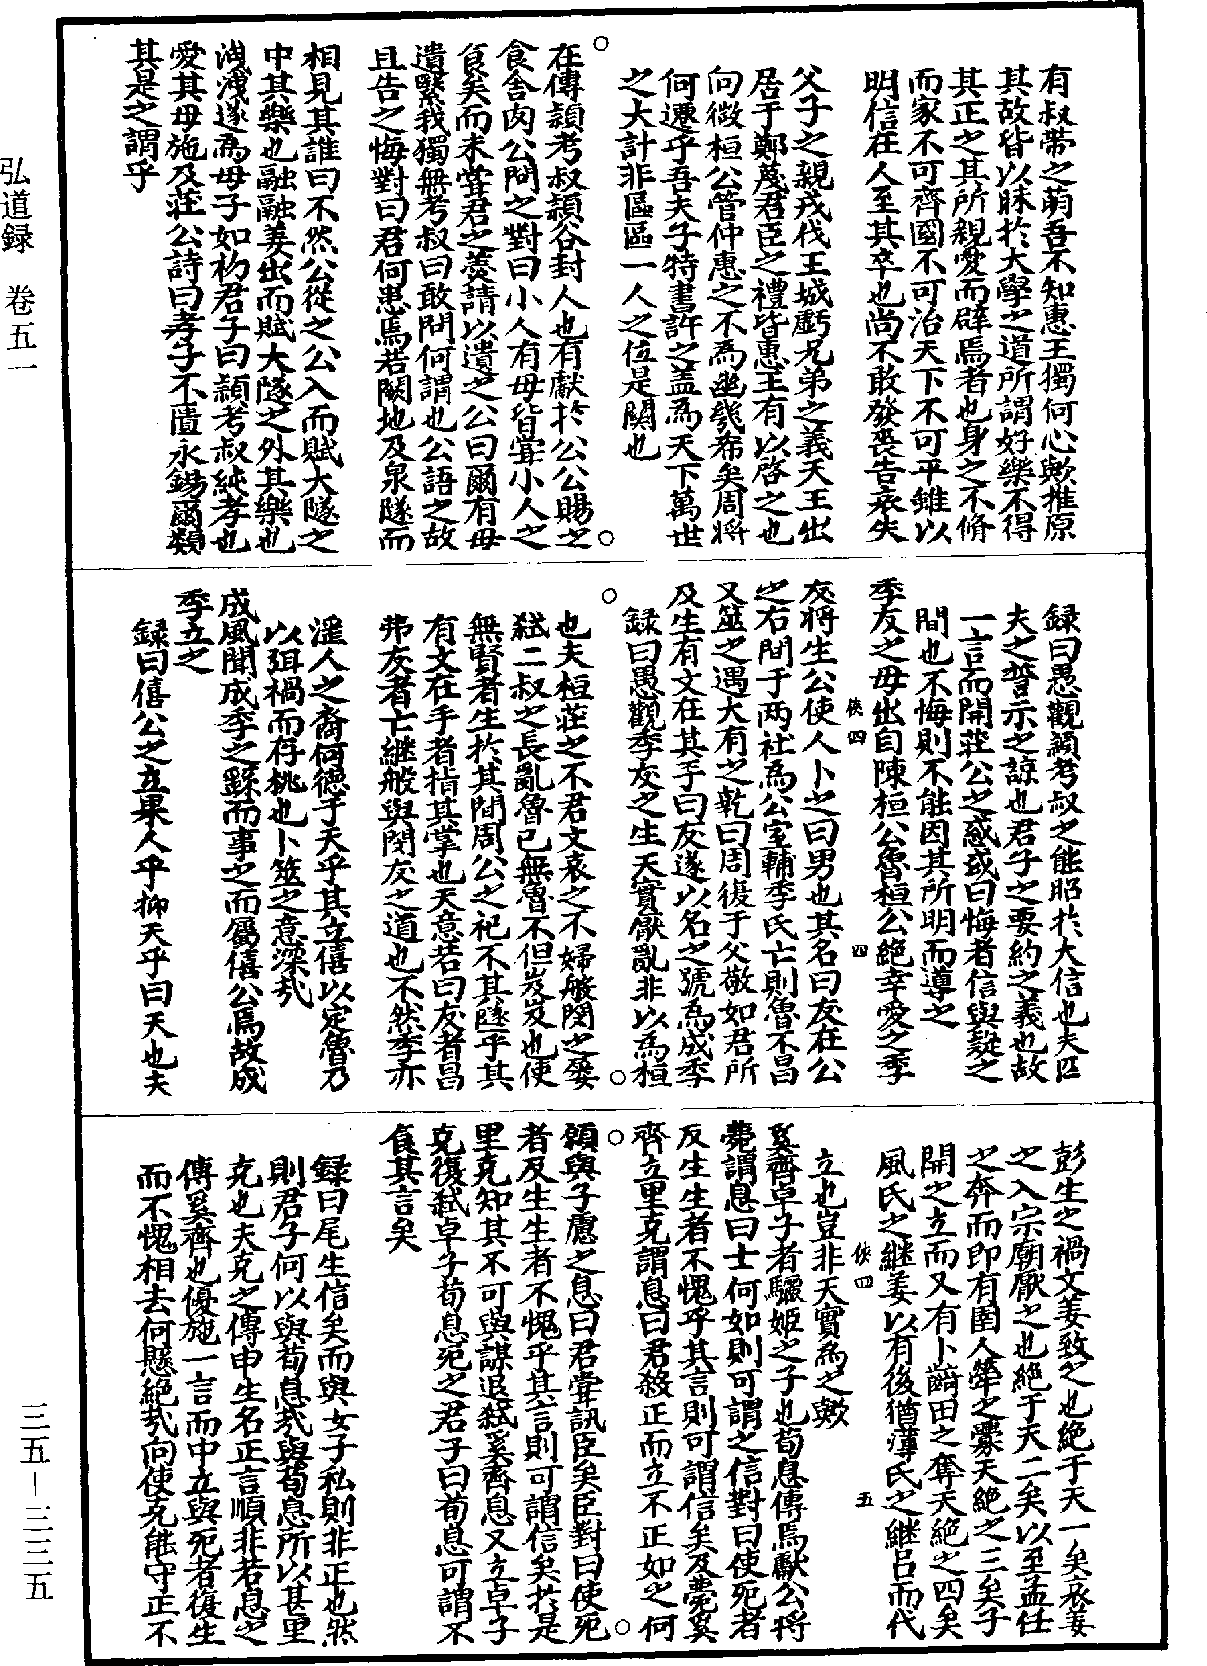 有叔帶之萌吾不知惠王獨何心歟推原
其故皆以昧於大學之道所謂好樂不得
其正之其所親愛而辟焉者也身之不脩
而家不可齊國不可治天下不可平雖以
明信在人至其卒也尚不敢發喪告哀失
父子之親戎伐王城虧兄弟之義天王出
居于鄭蔑君臣之禮皆惠王有以啓之也
向微桓公管仲惠之不為幽幾希矣周將
何遷乎吾夫子特書許之盖為天下萬世
之大計非區區一人之位是關也
○在傳潁考叔潁谷封人也有獻於公公賜之
食舍肉公問之對曰小人有母皆嘗小人之
食矣而未嘗君之羹請以遺之公曰爾有母
遺繄我獨無考叔曰敢問何謂也公語之故
且告之悔對曰君何患焉若闕地及泉隧而
相見其誰曰不然公從之公入而賦大隧之
中其樂也融融姜出而賦大隧之外其樂也
洩洩遂為母子如初君子曰潁考叔純孝也
愛其母施及莊公詩曰孝子不匱永錫爾類
其是之謂乎
録曰愚觀潁考叔之能昭於大信也夫匹
夫之誓示之諒也君子之要約之義也故
一言而開莊公之惑或曰悔者信與證之
間也不悔則不能因其所明而導之
○季友之母出自陳桓公魯桓公絶幸愛之季
友將生公使人卜之曰男也其名曰友在公
之右間于两社為公室輔季氏亡則魯不昌
又筮之遇大有之乾曰周復于父敬如君所
及生有文在其手曰友遂以名之號為成季
録曰愚觀季友之生天實厭亂非以為桓
也夫桓莊之不君文哀之不婦般閔之屢
弑二叔之長亂魯已無魯不但岌岌也使
無賢者生於其間周公之祀不其隧乎其
有文在手者指其掌也天意若曰友者昌
弗友者亡繼般與閔友之道也不然季亦
淫人之裔何德于天乎其立僖以定魯乃
以弭禍而存桃也卜筮之意深㢤
○成風聞成季之繇而事之而屬僖公焉故成
季立之
録曰僖公之立果人乎抑天乎曰天也夫
彭生之禍文姜致之也絶于天一矣哀姜
之入宗廟厭之也絶于天二矣以至孟任
之奔而即有圉人犖之釁天絶之三矣子
開之立而又有卜齮田之奪天絶之四矣
風氏之繼姜以有後猶薄氏之繼吕而代
立也豈非天實為之歟
○奚齊卓子者驪姬之子也荀息傳焉獻公將
薨謂息曰士何如則可謂之信對曰使死者
反生生者不愧乎其言則可謂信矣及薨奚
齊立里克謂息曰君殺正而立不正如之何
○願與子慮之息曰君嘗訊臣矣臣對曰使死
者反生生者不愧乎其言則可謂信矣於是
里克知其不可與謀退弑奚齊息又立卓子
克復弑卓子荀息死之君子曰荀息可謂不
食其言矣
録曰尾生信矣而與女子私則非正也然
則君子何以與荀息㢤與荀息所以甚里
克也夫克之傳申生名正言順非若息之
傳奚齊也優施一言而中立與死者復生
而不愧相去何懸絶㢤向使克能守正不
俠四
四
俠四
五
弘道録 卷五一
三五－三三五